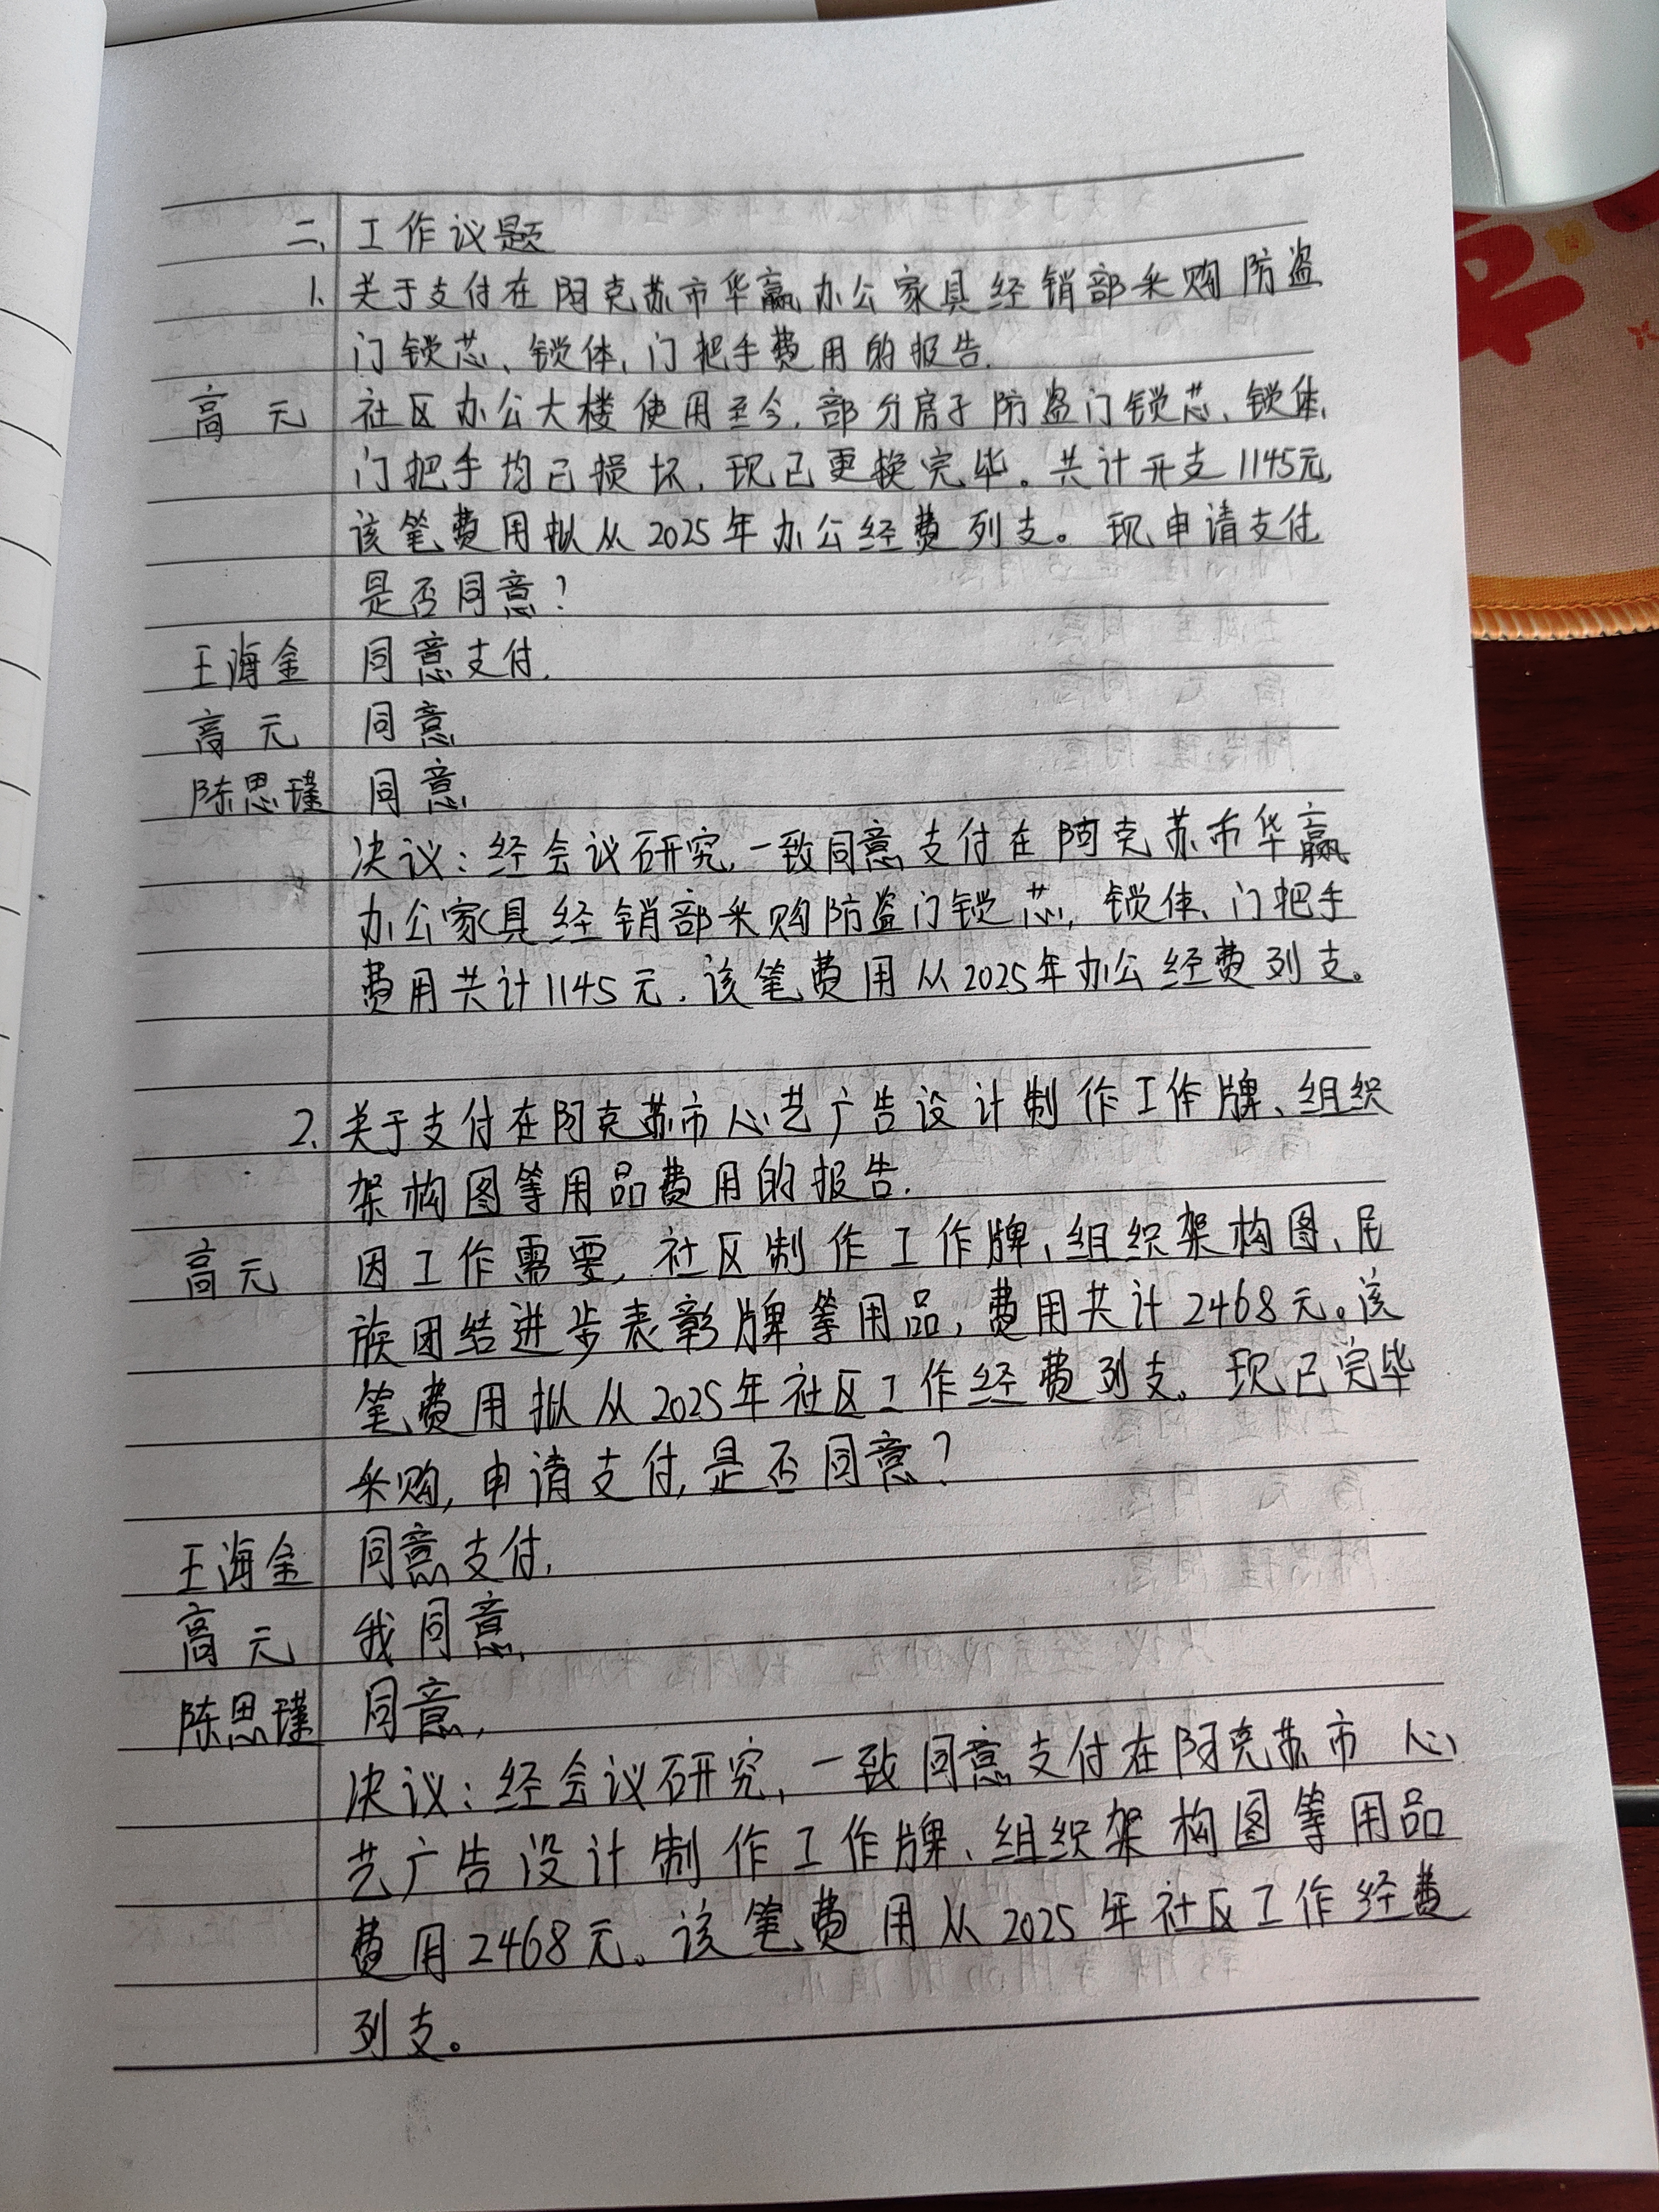 二、工作议题
1. 关于支付在阿克苏市华赢办公家具经销部采购防盗
门锁芯、锁体、门把手费用的报告.
高元 社区办公大楼使用至今,部分房子防盗门锁芯、锁体、
门把手均已损坏,现已更换完毕。共计开支1145元,
该笔费用拟从2025年办公经费列支。现申请支付
是否同意?
王海金 同意支付.
高元 同意
陈思瑾 同意
决议:经会议研究,一致同意支付在阿克苏市华赢
办公家具经销部采购防盗门锁芯,锁体、门把手
费用共计1145元.该笔费用从2025年办公经费列支。
2. 关于支付在阿克苏市心艺广告设计制作工作牌、组织
架构图等用品费用的报告.
高元 因工作需要,社区制作工作牌、组织架构图、民
族团结进步表彰牌等用品,费用共计2468元。该
笔费用拟从2025年社区工作经费列支。现已完毕
采购,申请支付,是否同意?
王海金 同意支付,
高元 我同意,
陈思瑾 同意,
决议:经会议研究,一致同意支付在阿克苏市心
艺广告设计制作工作牌、组织架构图等用品
费用2468元。该笔费用从2025年社区工作经费
列支。